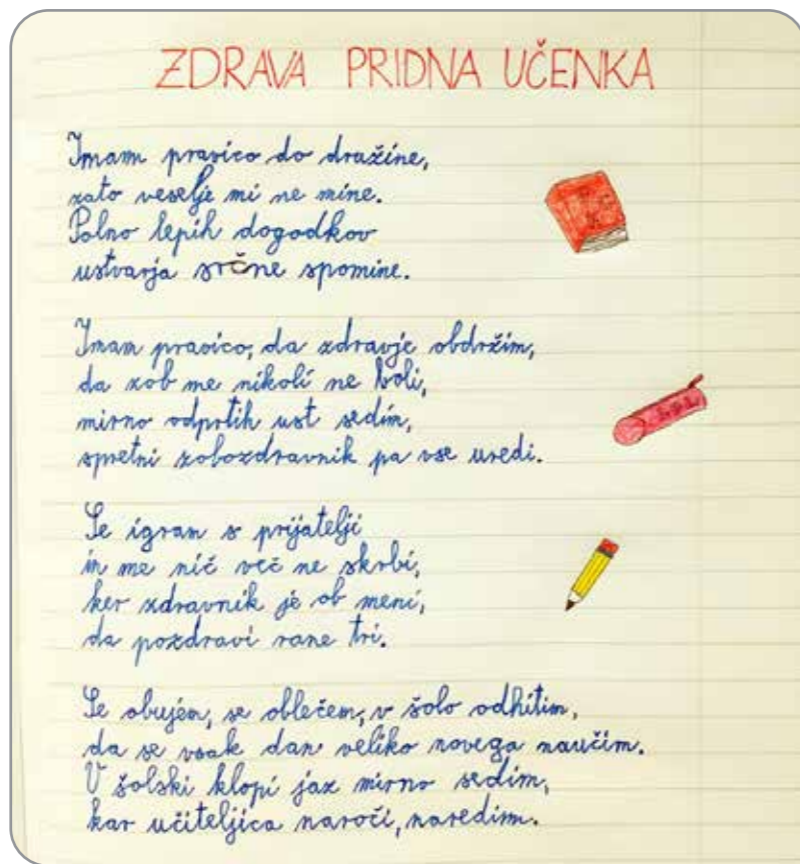 ZDRAVA PRIDNA UČENKA
Imam pravico do družine,
zato veselje mi ne mine.
Polno lepih dogodkov
ustvarja srčne spomine.
Imam pravico, da zdravje obdržim,
da zob me nikoli ne boli,
mirno odprtih ust sedim,
spretni zobozdravnik pa vse uredi.
Se igram s prijatelji
in me nič več ne skrbi,
ker zdravnik je ob meni,
da pozdravi rane tri.
Se obujem, se oblečem, v šolo odhitim,
da se vsak dan veliko novega naučim.
V šolski klopi jaz mirno sedim,
kar učiteljica naroči, naredim.